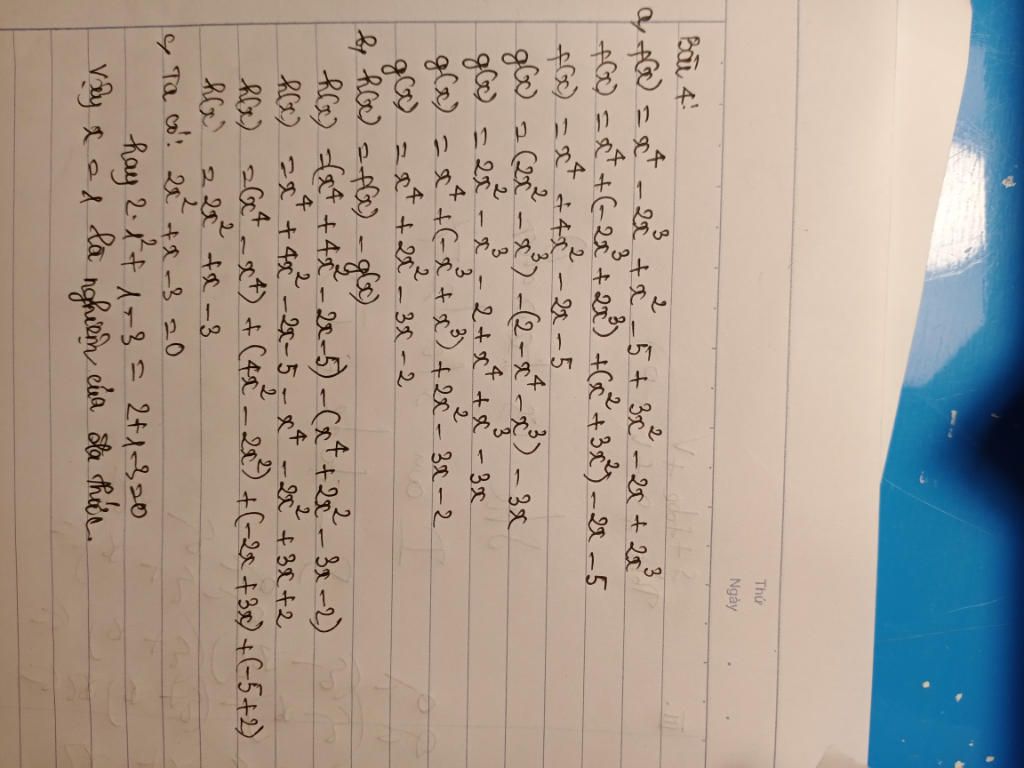 Thứ
Ngày
Bài 4:
a, f(x) = x⁴ - 2x³ + x² - 5 + 3x² - 2x + 2x³
f(x) = x⁴ + (-2x³ + 2x³) + (x² + 3x²) - 2x - 5
f(x) = x⁴ + 4x² - 2x - 5
g(x) = (2x² - x³) - (2 - x⁴ - x³) - 3x
g(x) = 2x² - x³ - 2 + x⁴ + x³ - 3x
g(x) = x⁴ + (-x³ + x³) + 2x² - 3x - 2
g(x) = x⁴ + 2x² - 3x - 2
b, h(x) = f(x) - g(x)
h(x) = (x⁴ + 4x² - 2x - 5) - (x⁴ + 2x² - 3x - 2)
h(x) = x⁴ + 4x² - 2x - 5 - x⁴ - 2x² + 3x + 2
h(x) = (x⁴ - x⁴) + (4x² - 2x²) + (-2x + 3x) + (-5 + 2)
h(x) = 2x² + x - 3
c, Ta có: 2x² + x - 3 = 0
hay 2.1² + 1 - 3 = 2 + 1 - 3 = 0
Vậy x = 1 là nghiệm của đa thức.